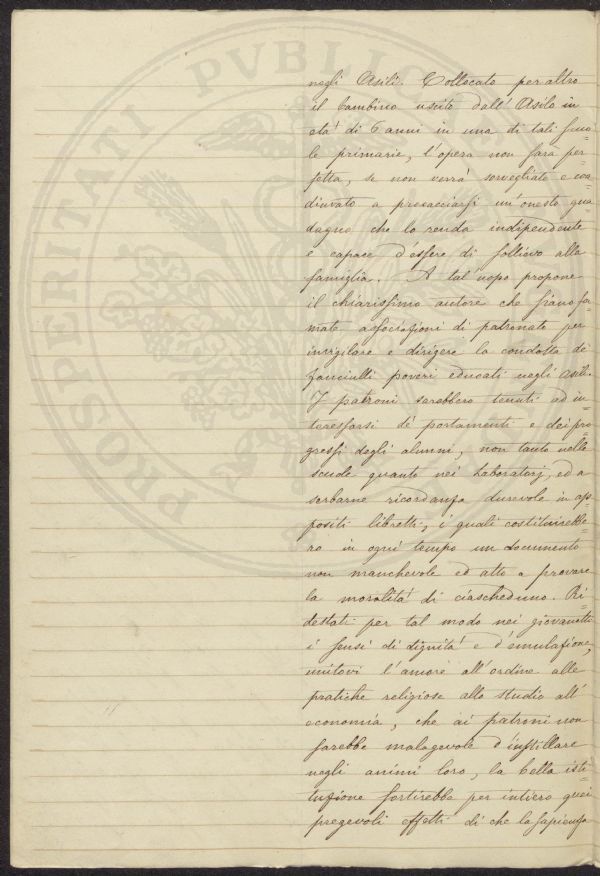 PROSPERITATI PVBLIC
negli Asili. Collocato per altro
il bambino uscito dall' Asilo in
età di 6 anni in una di tali scuo=
le primarie, l'opera non sarà per=
fetta, se non verrà sorvegliato e coa=
diuvato a procacciarsi un'onesto gua=
dagno che lo renda indipendente
e capace d'essere di sollievo alla
famiglia. A tal uopo propone
il chiarissimo autore che siano fo=
mate associazioni di patronato per
invigilare e dirigere la condotta de'
fanciulli poveri educati negli Asili.
I patroni sarebbero tenuti ad in=
teressarsi de' portamenti e dei pro=
gressi degli alunni, non tanto nelle
scuole quanto nei Laboratorj, ed a
serbarne ricordanza durevole in ap=
positi libretti, i quali costituirebbe=
ro in ogni tempo un documento
non manchevole ed atto a provare
la moralità di ciascheduno. Ri=
destati per tal modo nei giovanetti
i sensi di dignità e d'emulazione,
unitovi l'amore all'ordine alle
pratiche religiose allo studio all'
economia, che ai patroni non
sarebbe malagevole d'instillare
negli animi loro, la bella isti=
tuzione sortirebbe per intiero quei
pregevoli effetti di che la sapienza